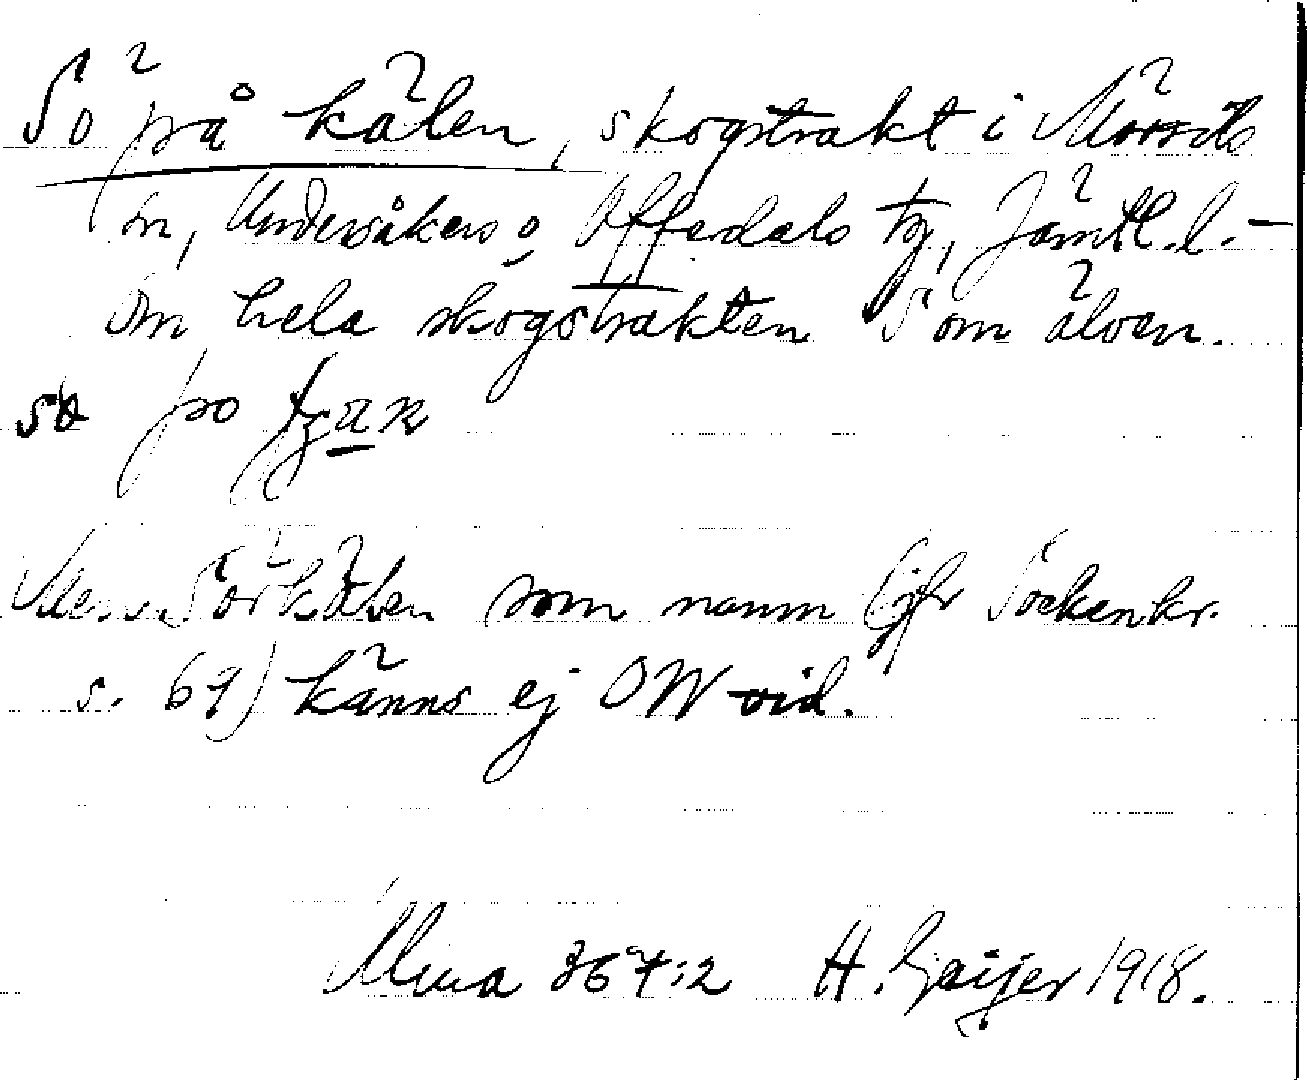 Sö på kälen, skogstrakt i Mörsils
sn, Undersåkers o. Offerdals tg, Jämtl. l. –
Om hela skogstrakten S om älven.
sö po
Men Sörkälen som namn (jfr Sockenkr.
s. 69) känns ej OW vid.
367:2 H. Geijer 1918.